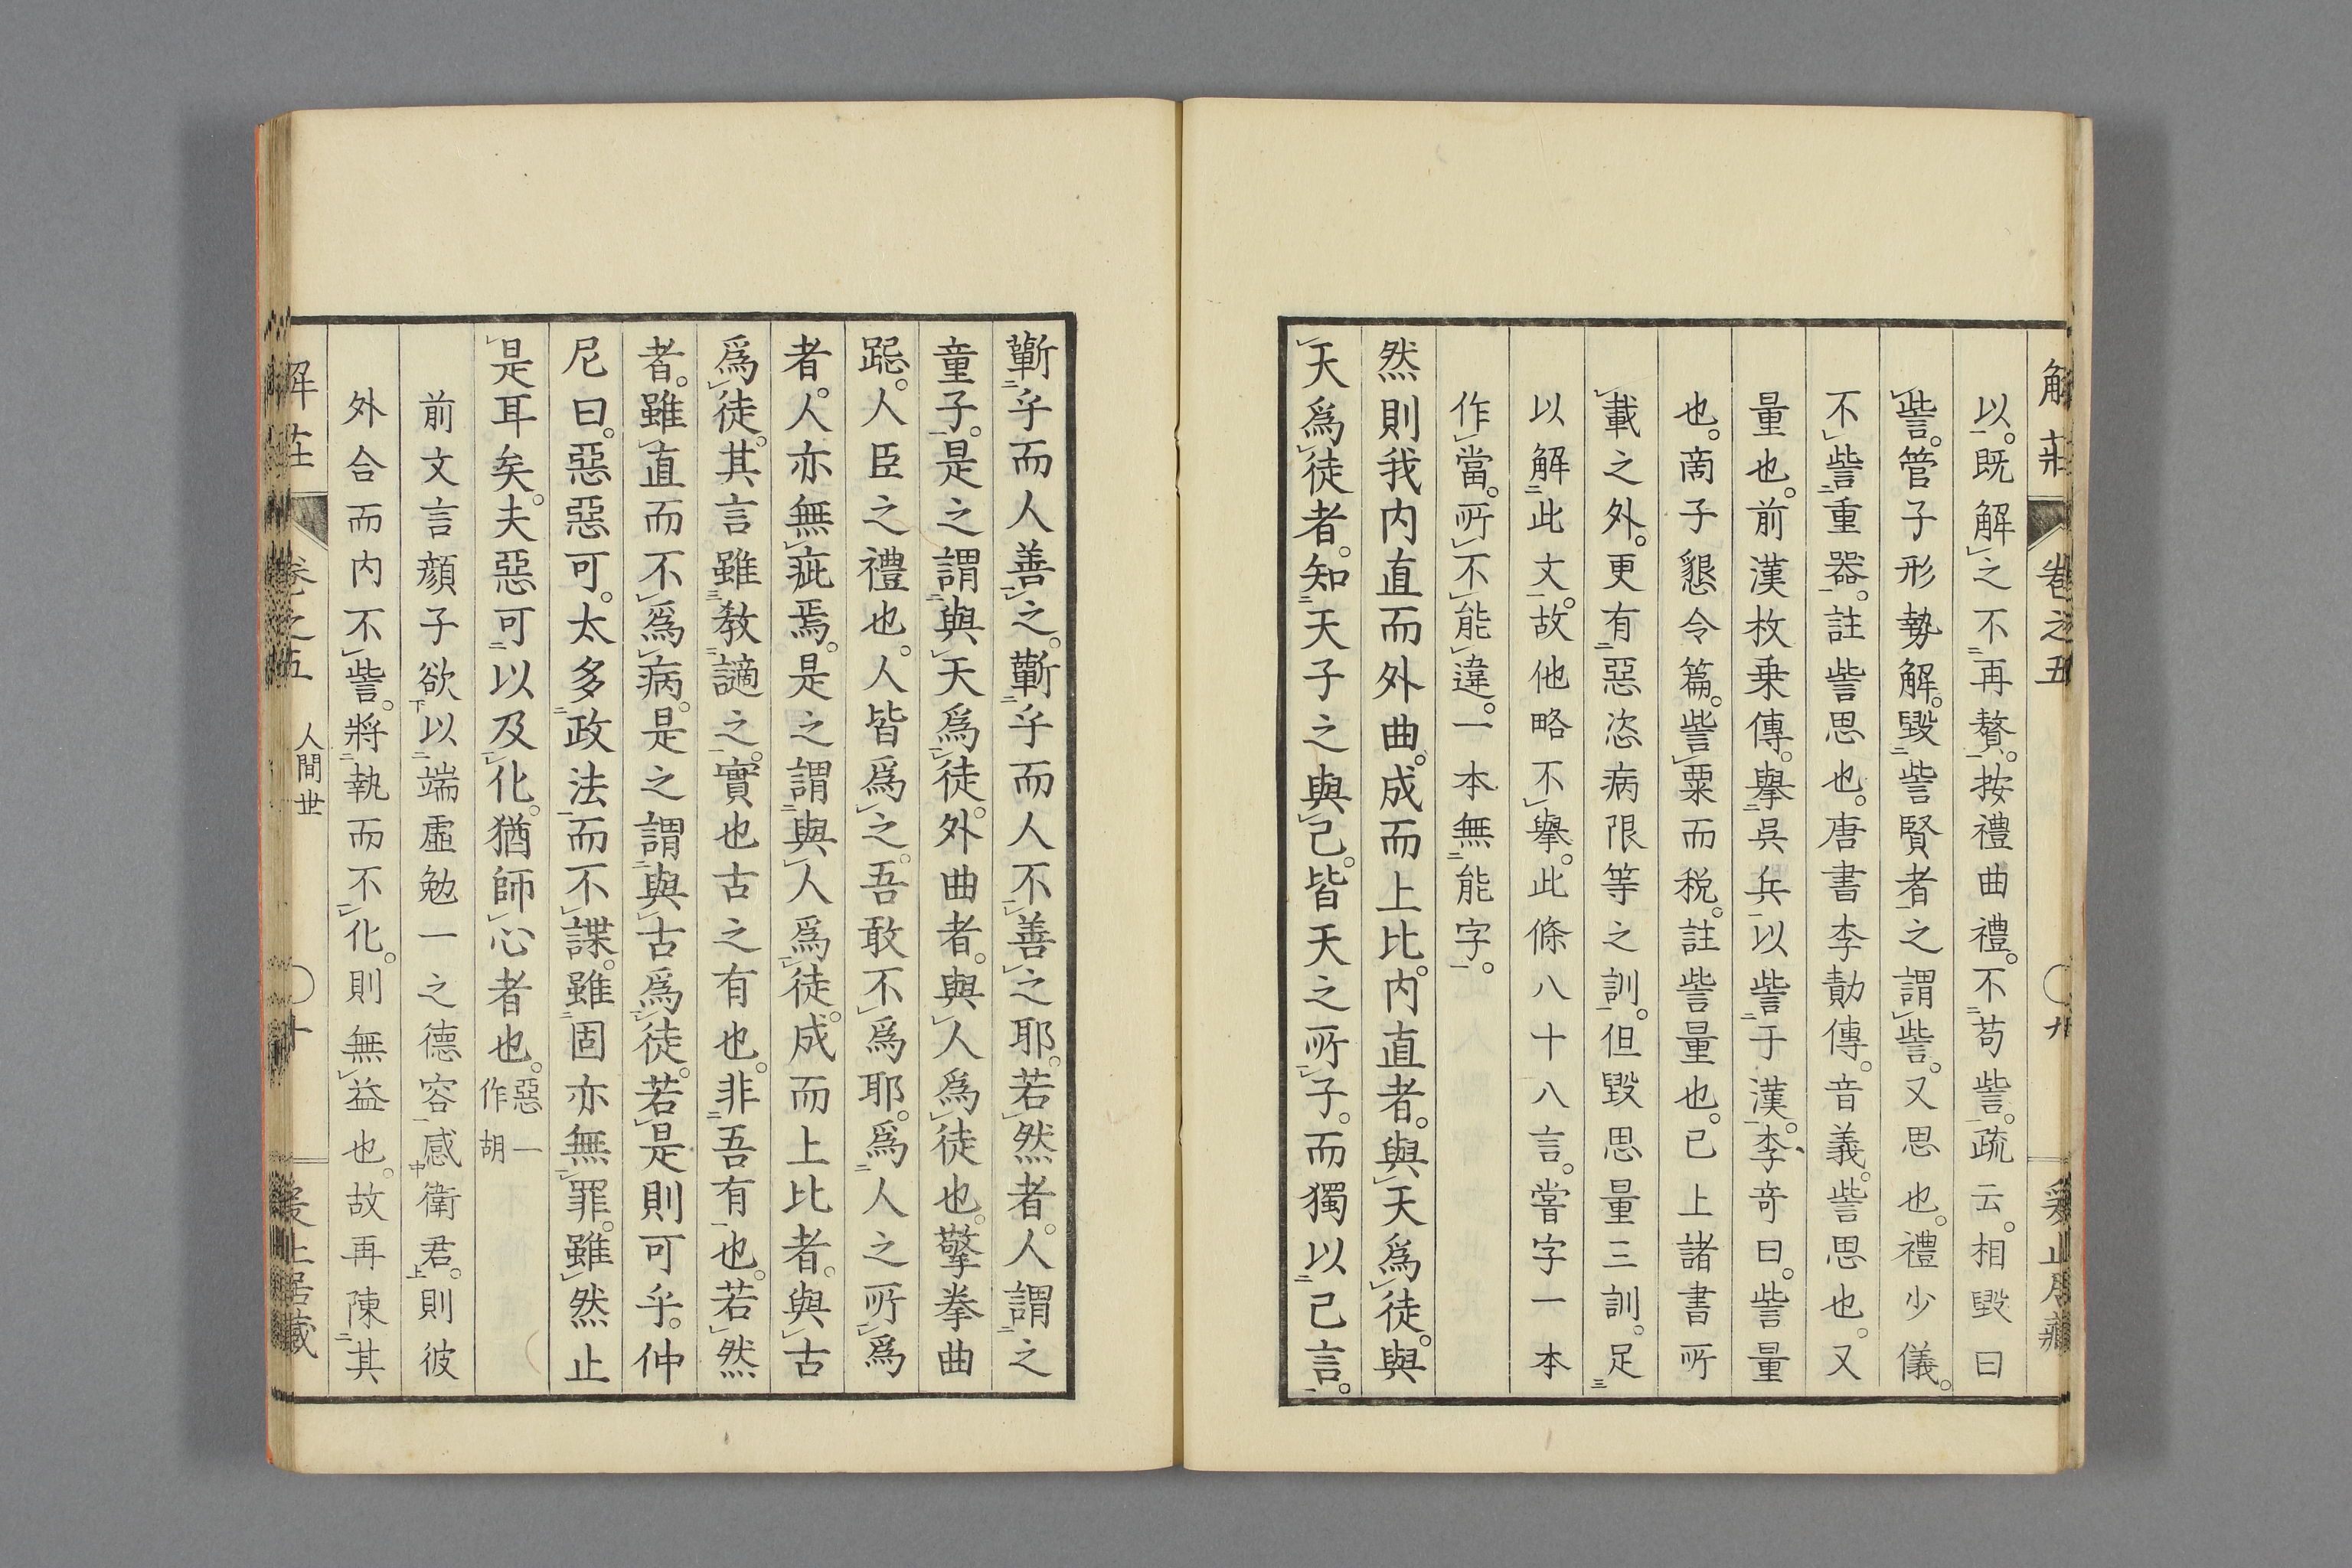 解莊 卷之五 〇九 爰止居藏
以。既解之不再贅。按禮曲禮。不苟訾。疏云。相毀曰
訾。管子形勢解。毀訾賢者之謂訾。又思也。禮少儀。
不訾重器。註訾思也。唐書李勣傳。音義。訾思也。又
量也。前漢枚乗傳。擧呉兵以訾于漢。李奇曰。訾量
也。啇子懇令篇。訾粟而税。註訾量也。已上諸書所
載之外。更有惡恣病限等之訓。但毀思量三訓。足
以解此文。故他略不擧。此條八十八言。嘗字一本
作當。所不能違。一本無能字。
然則我内直而外曲。成而上比。内直者。與天爲徒。與
天爲徒者。知天子之與己。皆天之所子。而獨以己言。
蘄乎而人善之。蘄乎而人不善之耶。若然者。人謂之
童子。是之謂與天爲徒。外曲者。與人爲徒也。擎拳曲
跽。人臣之禮也。人皆爲之。吾敢不爲耶。爲人之所爲
者。人亦無疵焉。是之謂與人爲徒。成而上比者。與古
爲徒。其言雖教讁之。實也古之有也。非吾有也。若然
者。雖直而不爲病。是之謂與古爲徒。若是則可乎。仲
尼曰。惡惡可。太多政法而不諜。雖固亦無罪。雖然止
是耳矣。夫惡可以及化。猶師心者也。惡一作胡
前文言顔子欲以端虛勉一之德容感衛君。則彼
外合而内不訾。將執而不化。則無益也。故再陳其
解莊 卷之五 人間世 〇十 爰止居藏